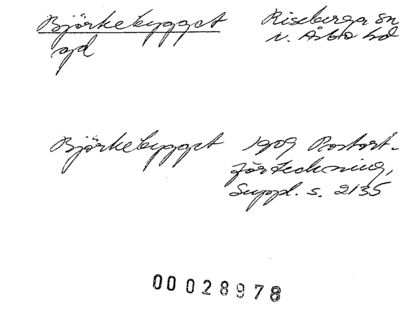 Björkebygget Riseberga sn
gd N. Åsbo hd
Björkebygget 1909 Postort-
förteckning,
Suppl. s. 2135
00028978